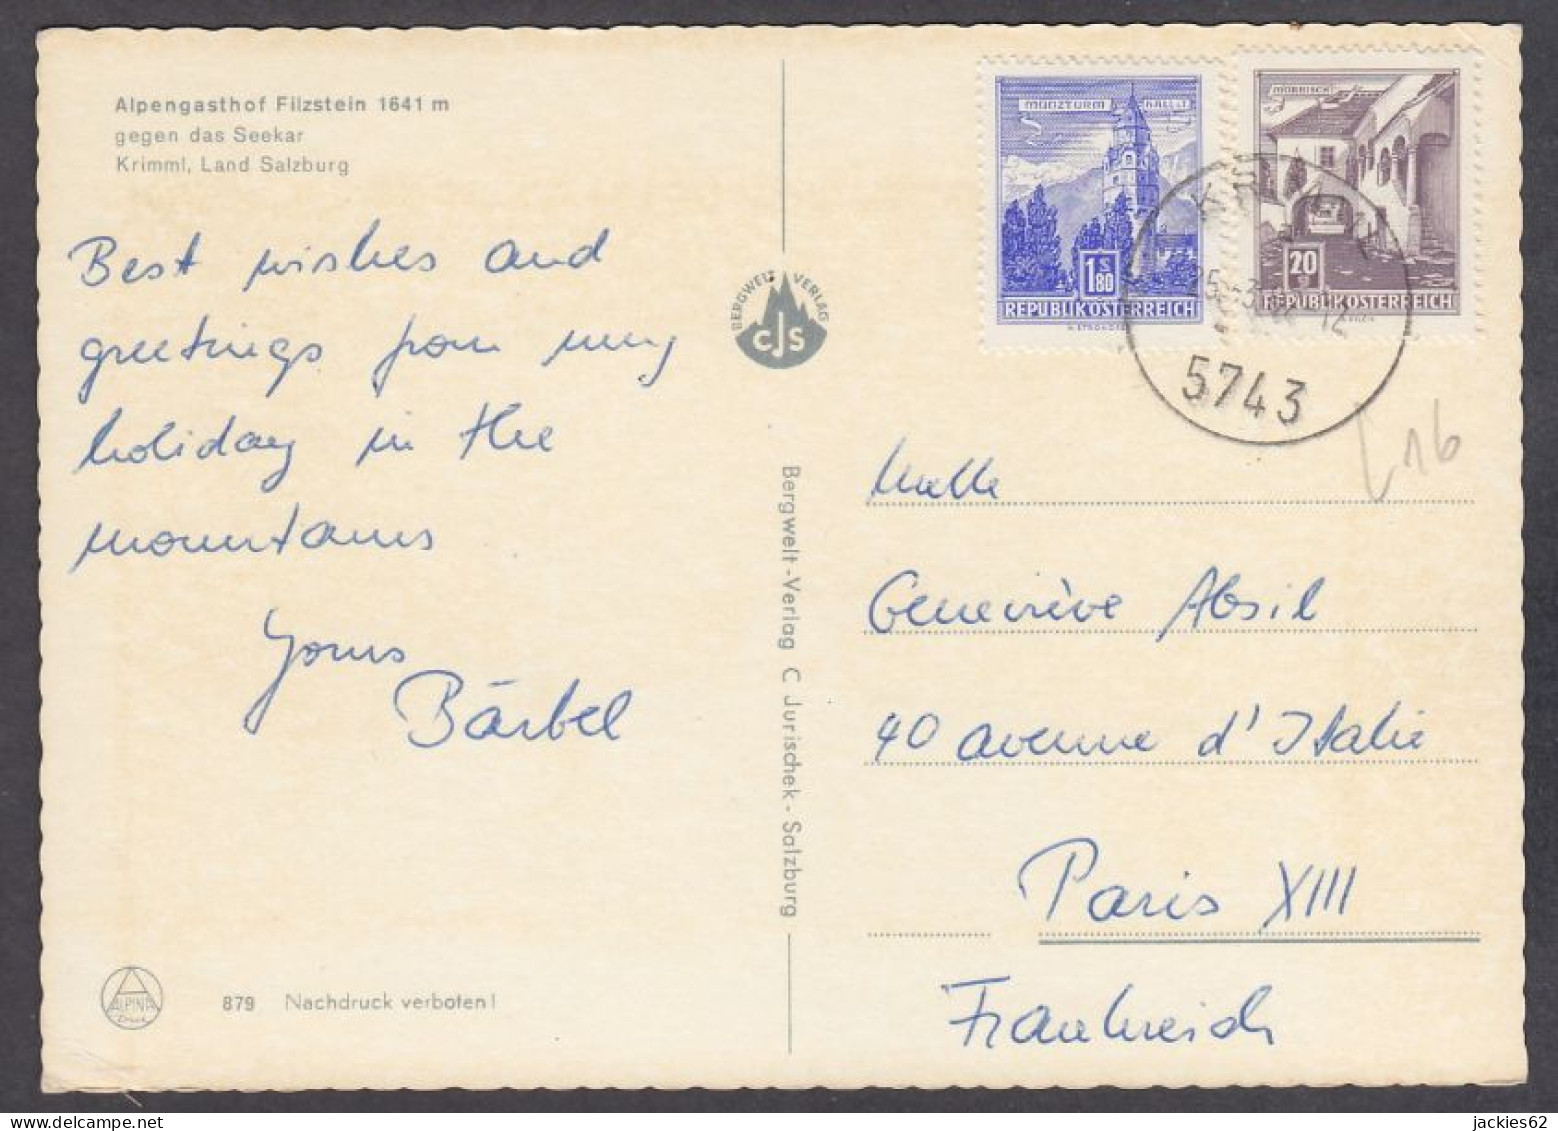 Alpengasthof Filzstein 1641 m
gegen das Seekar
Krimml, Land Salzburg
Best wishes and
greetings from my
holiday in the
mountains
Yours
Bärbel
ALPINA
Druck
879 Nachdruck verboten!
BERGWELT VERLAG
CJS
Bergwelt-Verlag C. Jurischek - Salzburg
MÜNZTURM HALL I.T.
1 S 80
REPUBLIK ÖSTERREICH
MÖRBISCH
20
REPUBLIK ÖSTERREICH
KRIMML
5743
16
Melle
Geneviève Absil
40 avenue d'Italie
Paris XIII
Frankreich
jackies62